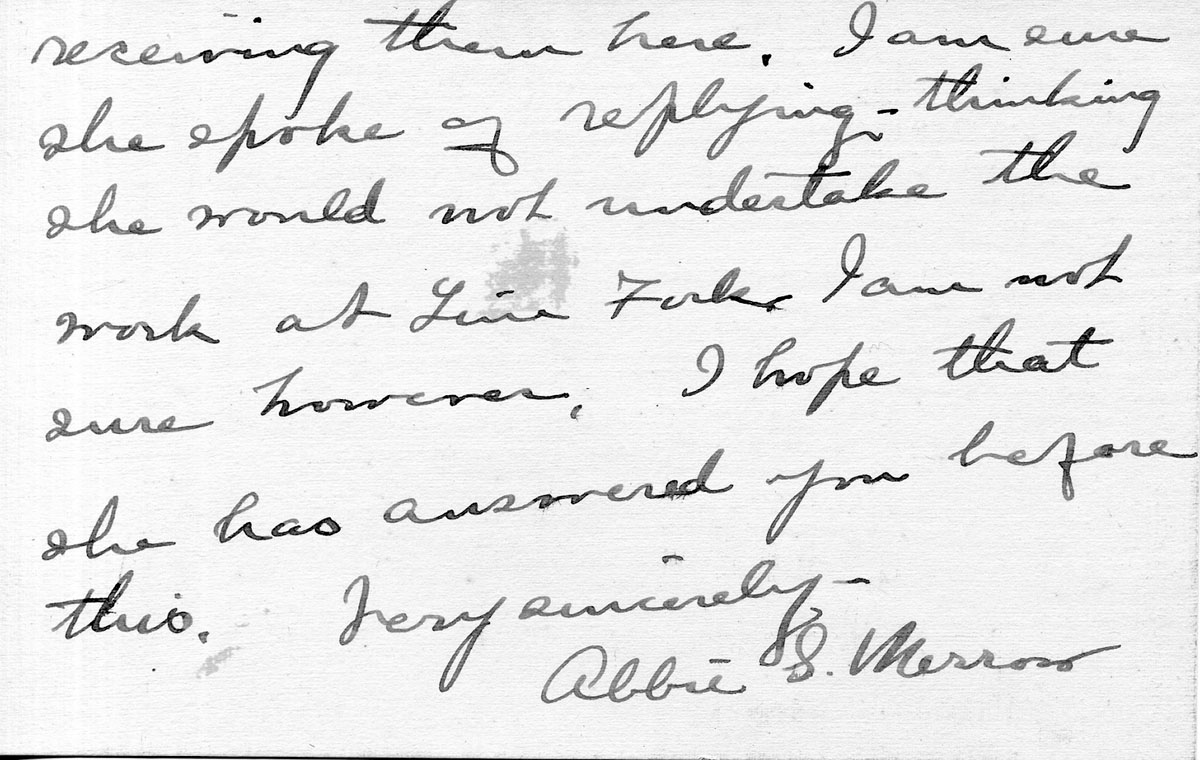 receiving them here. I am sure
she spoke of replying - thinking
she would not undertake the
work at Line Fork. I am not
sure however. I hope that
she has answered you before
this. Very sincerely -
Abbie S. Merrow